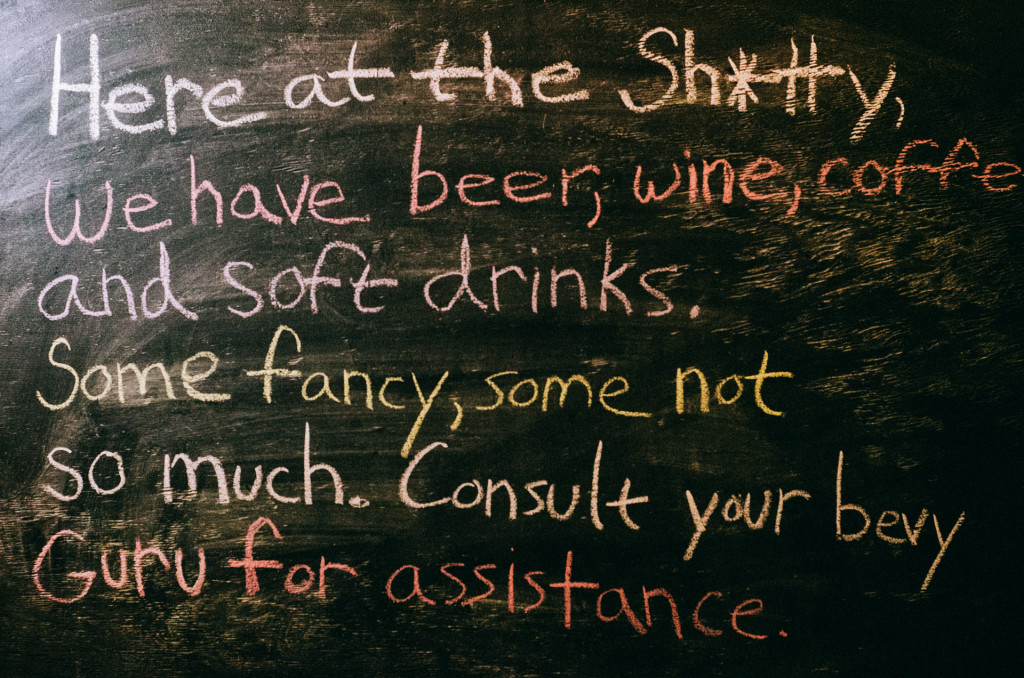 Here at the Sh*tty,
We have beer, wine, coffe
and soft drinks.
Some fancy, some not
so much. Consult your bevy
Guru for assistance.